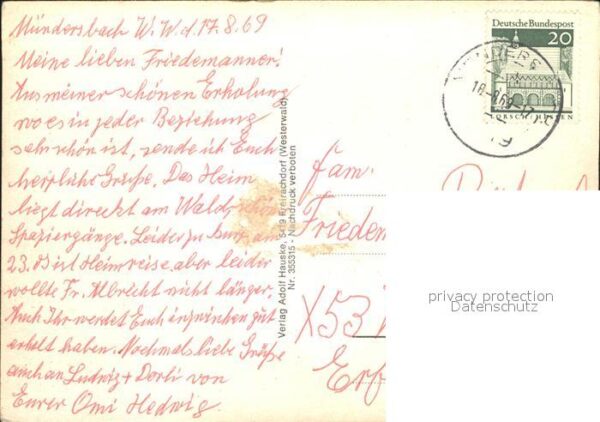 Mündersbach W.W.d.17.8.69
Meine lieben Friedemänner!
Aus meiner schönen Erholung
wo es in jeder Beziehung
sehr schön ist, sende ich Euch
herzliche Grüße. Das Heim
liegt direkt am Wald, schöne
Spaziergänge. Leider zu kurz, am
23. 8 ist Heimreise, aber leider
wollte Fr. Albrecht nicht länger.
Auch Ihr werdet Euch inzwischen gut
erholt haben. Nochmals liebe Grüße
auch an Ludwig + Dorli von
Eurer Omi Hedwig.
Verlag Adolf Hauske, 5419 Freirachdorf (Westerwald)
Nr. 355315 - Nachdruck verboten
Deutsche Bundespost
20
LORSCH/HESSEN
18.-8.69
Fam.
Friedem
X53
Erf
privacy protection
Datenschutz